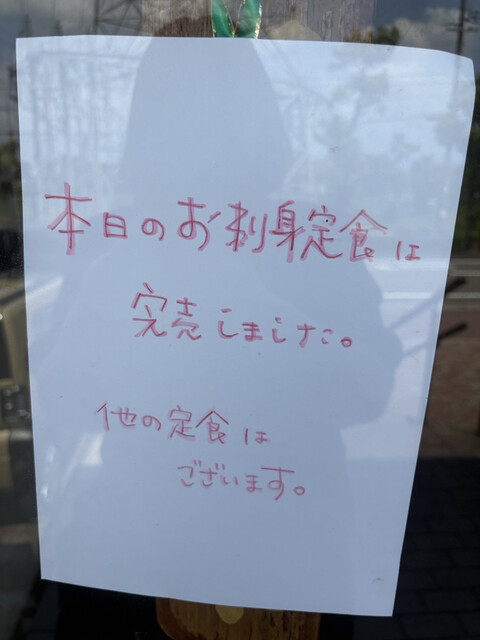 本日のお刺身定食は
完売しました。
他の定食は
ございます。